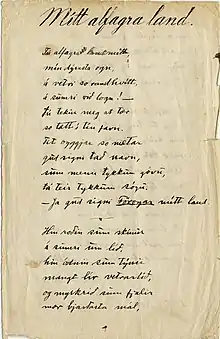 Mítt alfagra land.
Tú alfagra land mítt,
mín dýrasta ogn
á vetri so randhvítt,
á sumri við logn! —
tú tekur meg at tær
so tætt í tín favn.
Tit oyggjar so mætar
gud signi tað navn,
sum menn tykkum góvu,
tá teir tykkum sógu.
— Ja gud signi Föroyar mítt land.
Hin roðin sum skínur
á sumri um líð,
hin ódnin sum týnir
mangt lív vetrartíð,
og myrkrið sum fjalir
mær bjartasta mál,